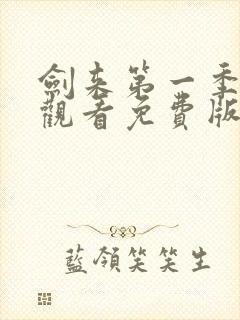 劍来第一季
觀看免費版
藍領笑笑生